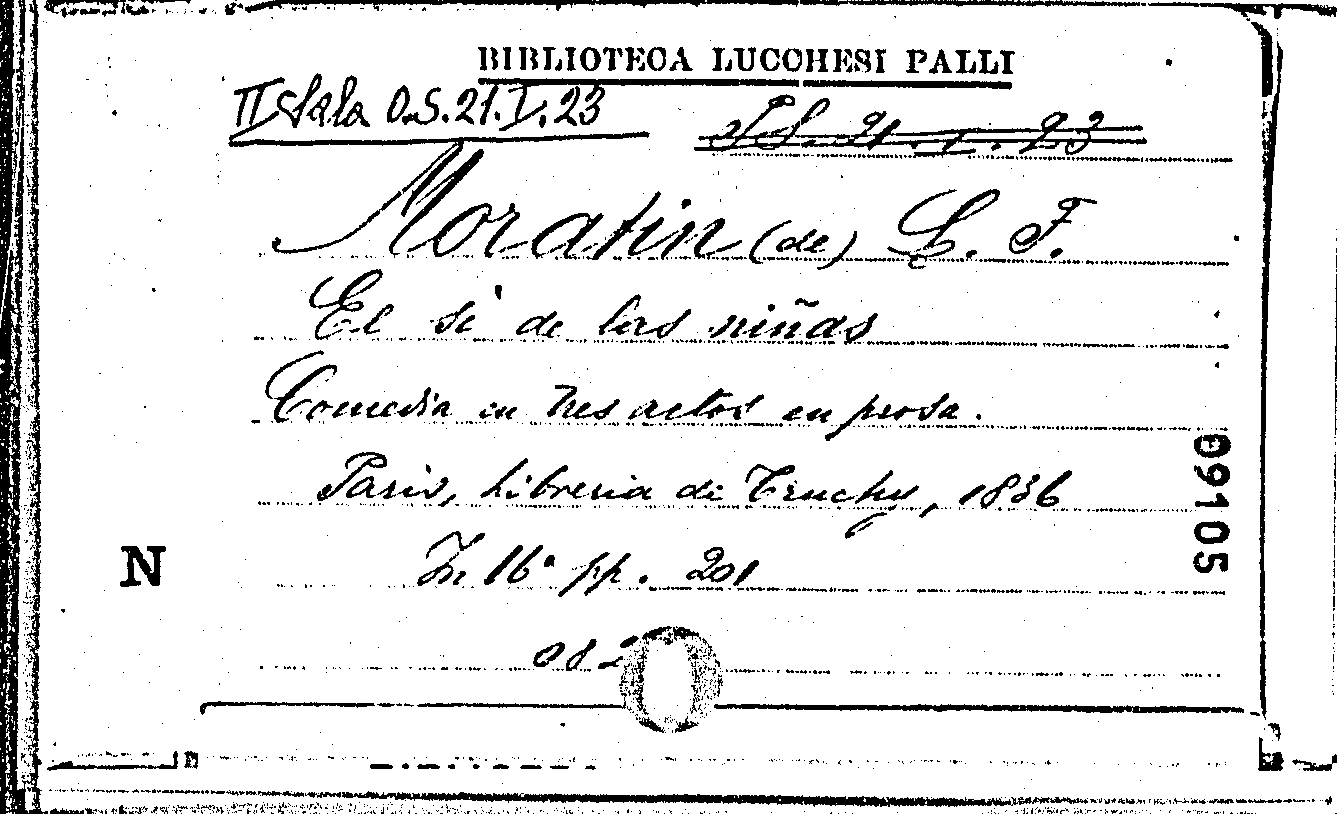 BIBLIOTECA LUCCHESI PALLI
II Sala O.S. 21. I. 23
S. 21. I. 23
Moratin (de) L. F.
El sì de las niñas
Comedia en tres actos en prosa.
Paris, libreria de Truchy, 1836
09105
N
In 16° pp. 201
082